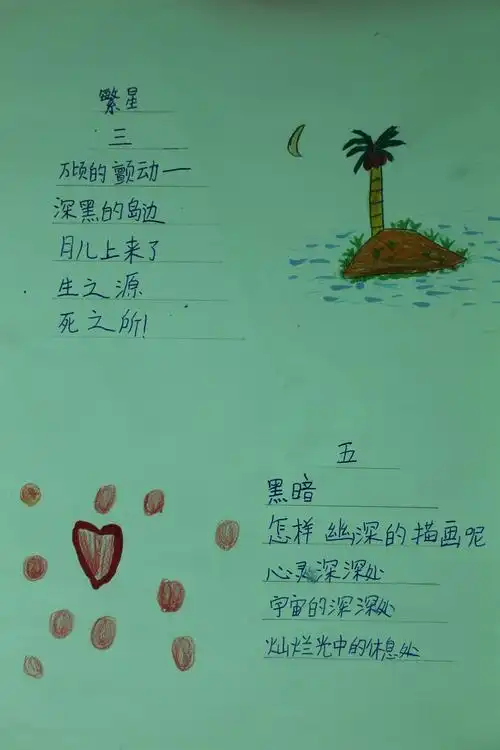 繁星
三
万顷的颤动一
深黑的岛边
月儿上来了
生之源
死之所!
五
黑暗
怎样幽深的描画呢
心灵深深处
宇宙的深深处
灿烂光中的休息处